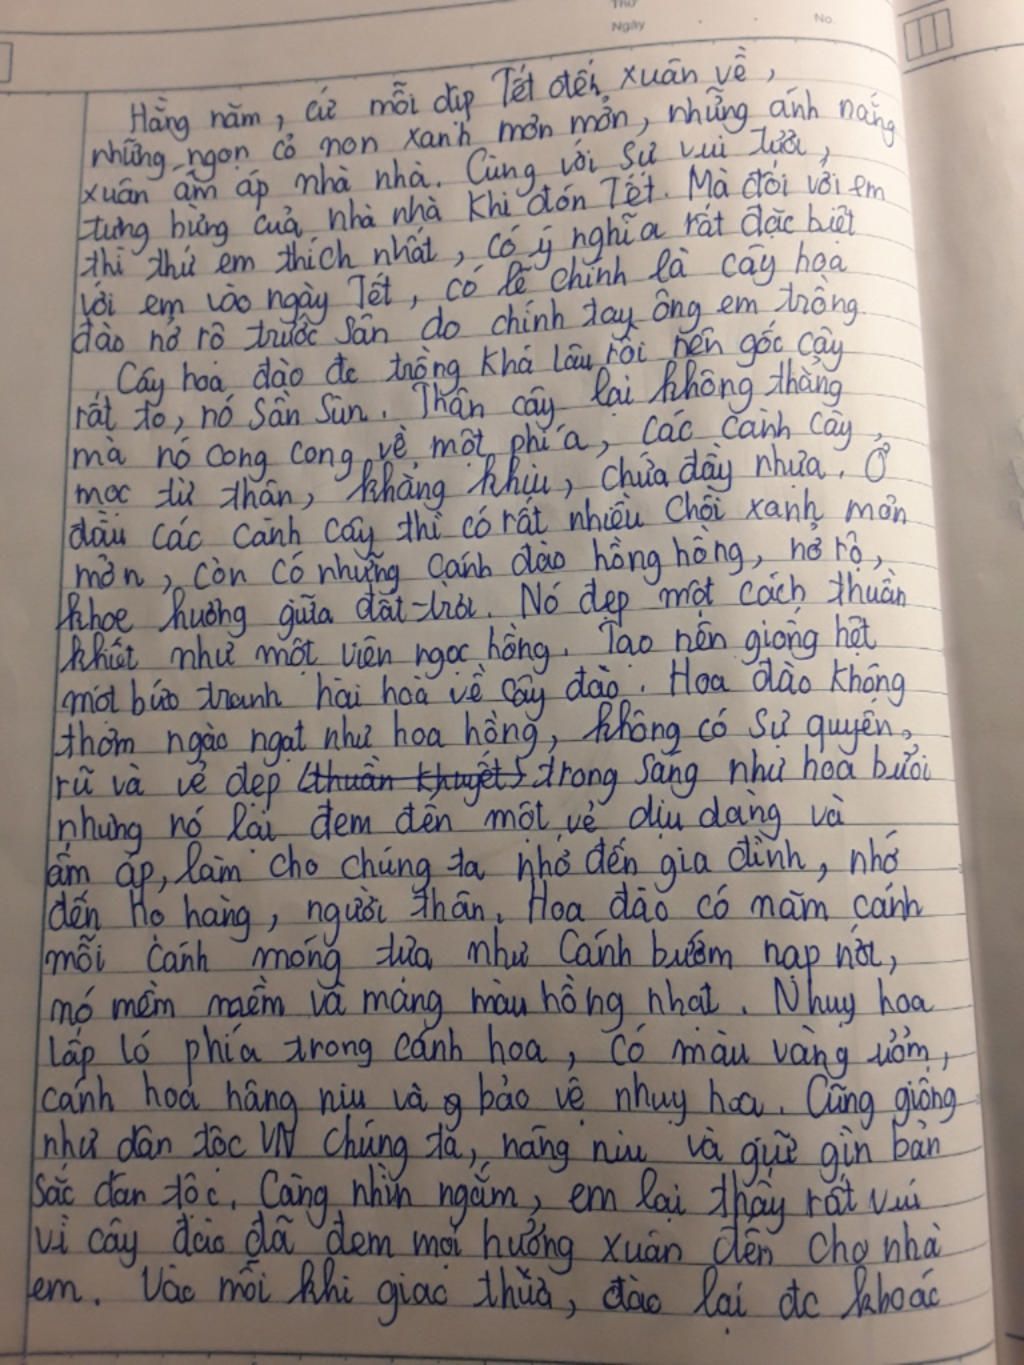 Thứ
Ngày
No.
Hằng năm, cứ mỗi dịp Tết đến xuân về,
những ngọn cỏ non xanh mơn mởn, những ánh nắng
xuân ấm áp nhà nhà. Cùng với sự vui tươi,
tưng bừng cuả nhà nhà khi đón Tết. Mà đối với em
thì thứ em thích nhất, có ý nghĩa rất đặc biệt
với em vào ngày Tết, có lẽ chính là cây hoa
đào nở rộ trước sân do chính tay ông em trồng.
Cây hoa đào đc trồng khá lâu rồi nên gốc cây
rất to, nó sần sùn. Thân cây lại không thẳng
mà nó cong cong về một phía, các cành cây
mọc từ thân, khẳng khiu, chứa đầy nhựa. Ở
đầu các cành cây thì có rất nhiều chồi xanh mơn
mởn, còn có những cánh đào hồng hồng, nở rộ,
khoe hương giữa đất trời. Nó đẹp một cách thuần
khiết như một viên ngọc hồng. Tạo nên giống hệt
một bức tranh hài hoà về cây đào. Hoa đào không
thơm ngào ngạt như hoa hồng, không có sự quyến
rũ và vẻ đẹp (thuần khuyết) trong sáng như hoa bưởi
nhưng nó lại đem đến một vẻ dịu dàng và
ấm áp, làm cho chúng ta nhớ đến gia đình, nhớ
đến họ hàng, người thân. Hoa đào có năm cánh
mỗi cánh mỏng tựa như cánh bướm nạp nơi,
nó mềm mềm và mang màu hồng nhạt. Nhuỵ hoa
lấp ló phía trong cánh hoa, có màu vàng ươm,
cánh hoa nâng niu và bảo vệ nhuỵ hoa. Cũng giống
như dân tộc VN chúng ta, nâng niu và giữ gìn bản
sắc dân tộc. Càng nhìn ngắm, em lại thấy rất vui
vì cây đào đã đem mọi hương xuân đến cho nhà
em. Vào mỗi khi giao thừa, đào lại đc khoác